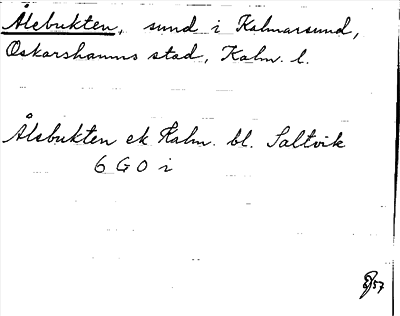 Ålebukten, sund i Kalmarsund,
Oskarshamns stad, Kalm. l.
Ålebukten ek. Kalm. bl. Saltvik
6 G 0 i
57